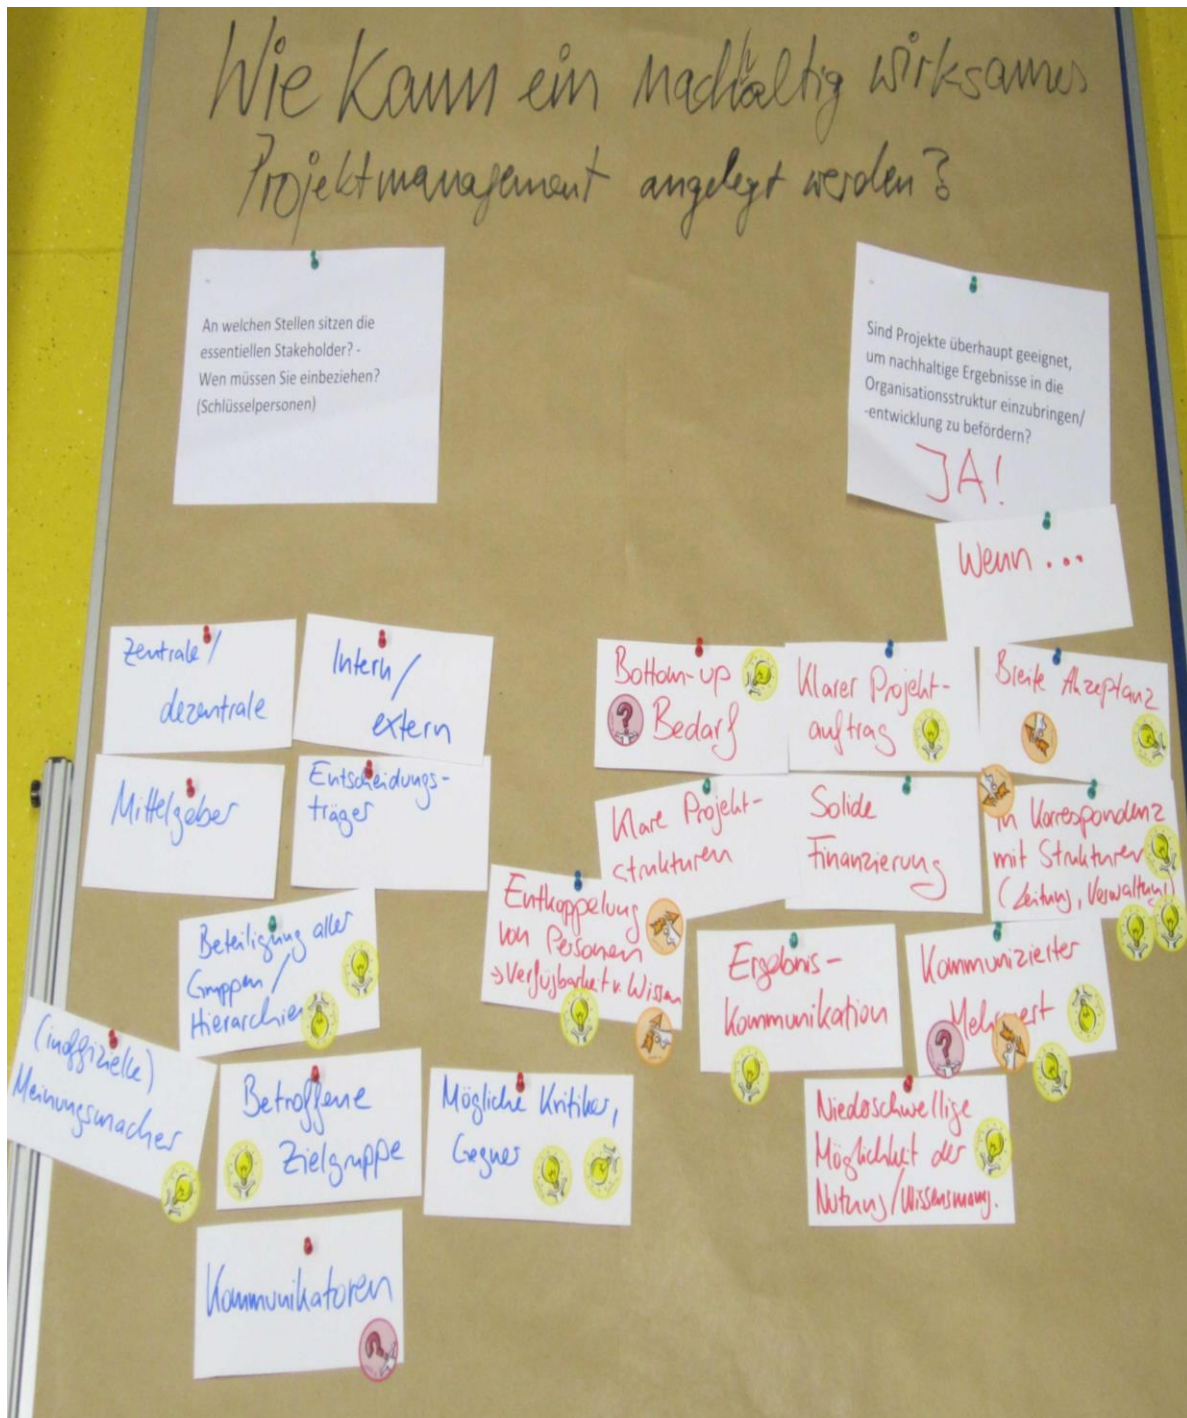 Wie kann ein nachhaltig wirksames
Projektmanagement angelegt werden?
An welchen Stellen sitzen die
essentiellen Stakeholder? -
Wen müssen Sie einbeziehen?
(Schlüsselpersonen)
Sind Projekte überhaupt geeignet,
um nachhaltige Ergebnisse in die
Organisationsstruktur einzubringen/
-entwicklung zu befördern?
JA!
Wenn ...
Zentrale/
dezentrale
Intern/
extern
Mittelgeber
Entscheidungs-
träger
Beteiligung aller
Gruppen/
Hierarchien
(inoffizielle)
Meinungsmacher
Betroffene
Zielgruppe
Mögliche Kritiker,
Gegner
Kommunikatoren
Bottom-up
Bedarf
Klarer Projekt-
auftrag
Breite Akzeptanz
Klare Projekt-
strukturen
Solide
Finanzierung
in Korrespondenz
mit Strukturen
(Leitung, Verwaltung)
Entkoppelung
von Personen
→ Verfügbarkeit v. Wissen
Ergebnis-
kommunikation
Kommunizierter
Mehrwert
Niederschwellige
Möglichkeit der
Nutzung/Wissensmang.